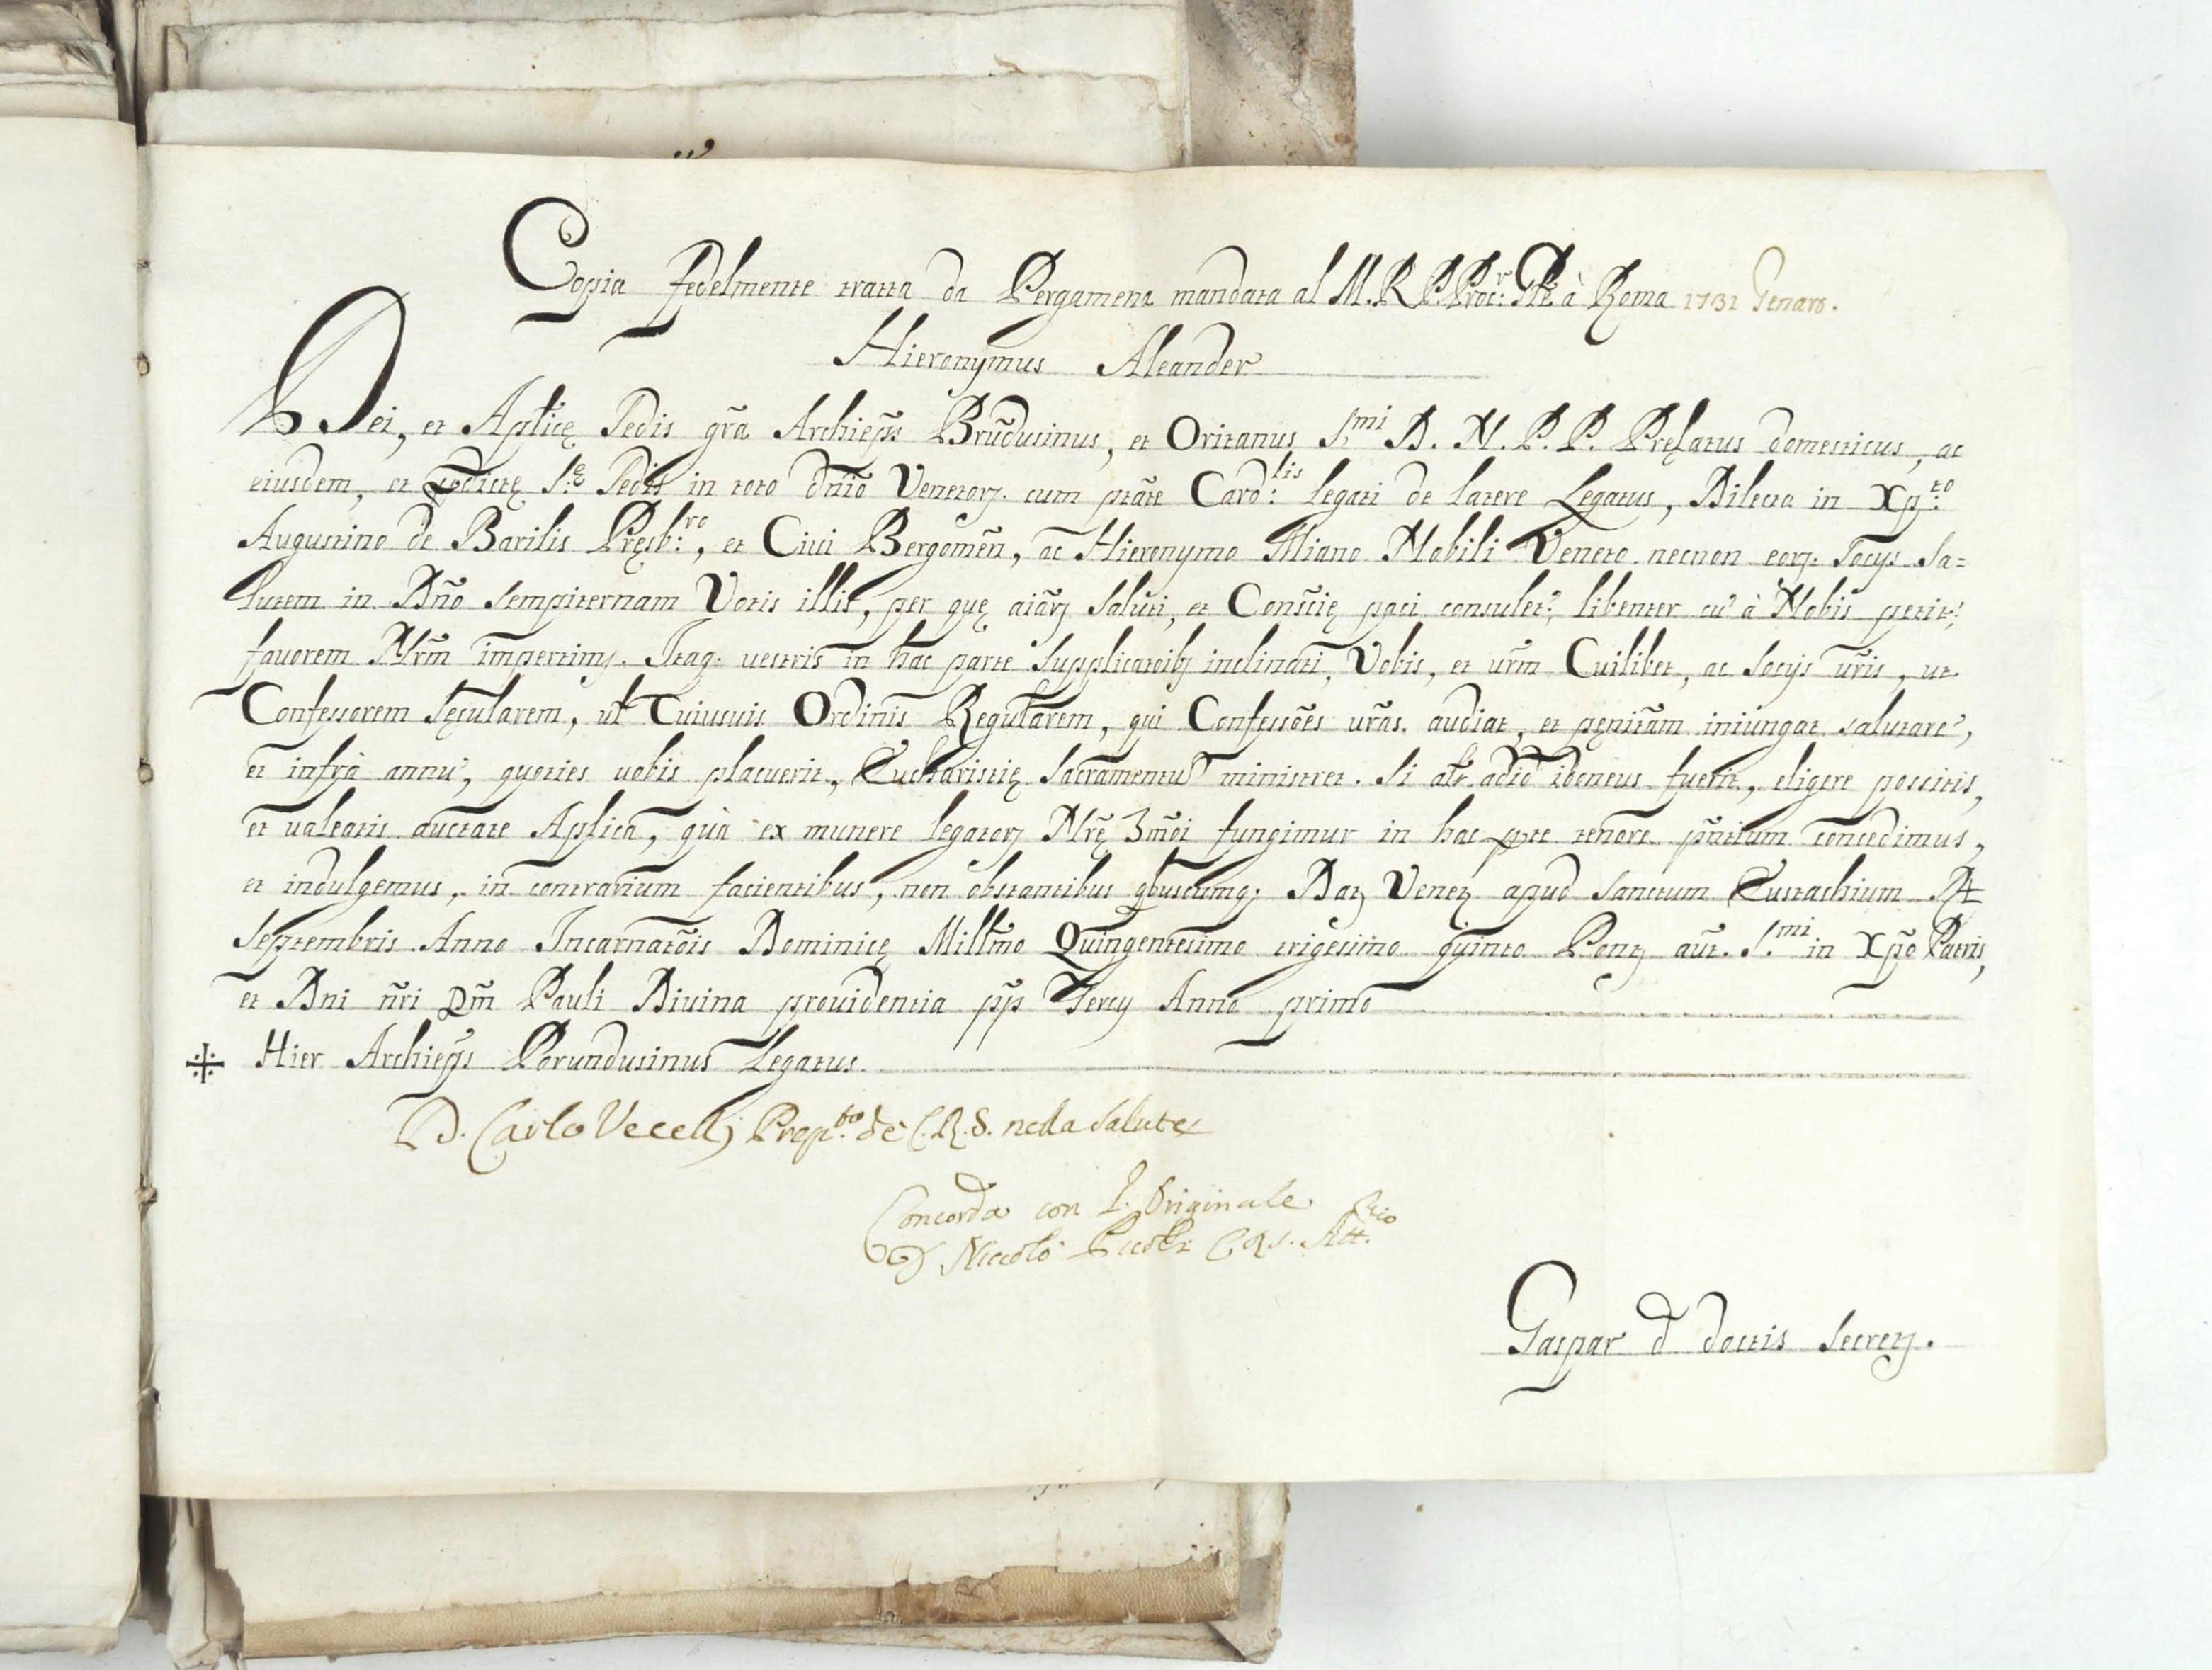 Copia fedelmente tratta da Pergamena mandata al M. R. P. Proc.r Gñle à Roma 1731 Genaro.
Hieronymus Aleander
Dei, et Aplicę Sedis grã Archiepũs Brũdusinus, et Oritanus S.mi D. N. P. P. Pręlatus domesticus, ac
eiusdem, et p̱dictę S.e Sedis in toto dñio Venetorȝ. cum ptãte Card:lis legati de latere Legatus, Dilecto in Xp:to
Augustino de Barilis Pręsb:ro, et Ciui Bergomẽn, ac Hieronymo Miano Nobili Veneto necnon eorȝ. Socijs Sa=
lutem in Dño sempiternam Votis illis, per quę aiãrȝ saluti, et Consciẽ paci consulet:, libenter cu' à Nobis petit:,
fauorem Nrm̃ impertimȝ. Itaqȝ uestris in hac parte supplicatõibȝ inclinati, Vobis, et urm̃ Cuilibet, ac Socijs uris̃, ut
Confessorem sęcularem, ul̃ Cuiusuis Ordinis Regularem, qui Confessões uras̃. audiat, et pęnitãm iniungat salutare',
et infrà annu', quoties uobis placuerit, Eucharistię Sacramentu' ministret. Si alr̃ adid̃ idoneus fuerit, eligere possitis,
et ualeatis auctate Aplica, quà ex munere legatorȝ Nrę̃ Zmõi fungimur in hac pte tenore pñtium concedimus,
et indulgemus, in contrarium facientibus, non obstantibus qbuscumqȝ Datȝ Venetȝ apud Sanctum Eustachium Die
Septembris Anno Incarnatõis Dominicę Millmõ Quingentesimo trigesimo quinto Pontȝ aut̃. S.mi in Xpõ Patris,
et Dni ñri Dm̃ Pauli Diuina prouidentia pp̃ Tercij Anno primo
Hier Archiepũs Porundusinus Legatus
D. Carlo Vecelli Prep.to de C. R. S. nella Salute
Concorda con l'Originale
D Niccolò C. R. S. Att.
Gaspar d doctis Secretȝ.